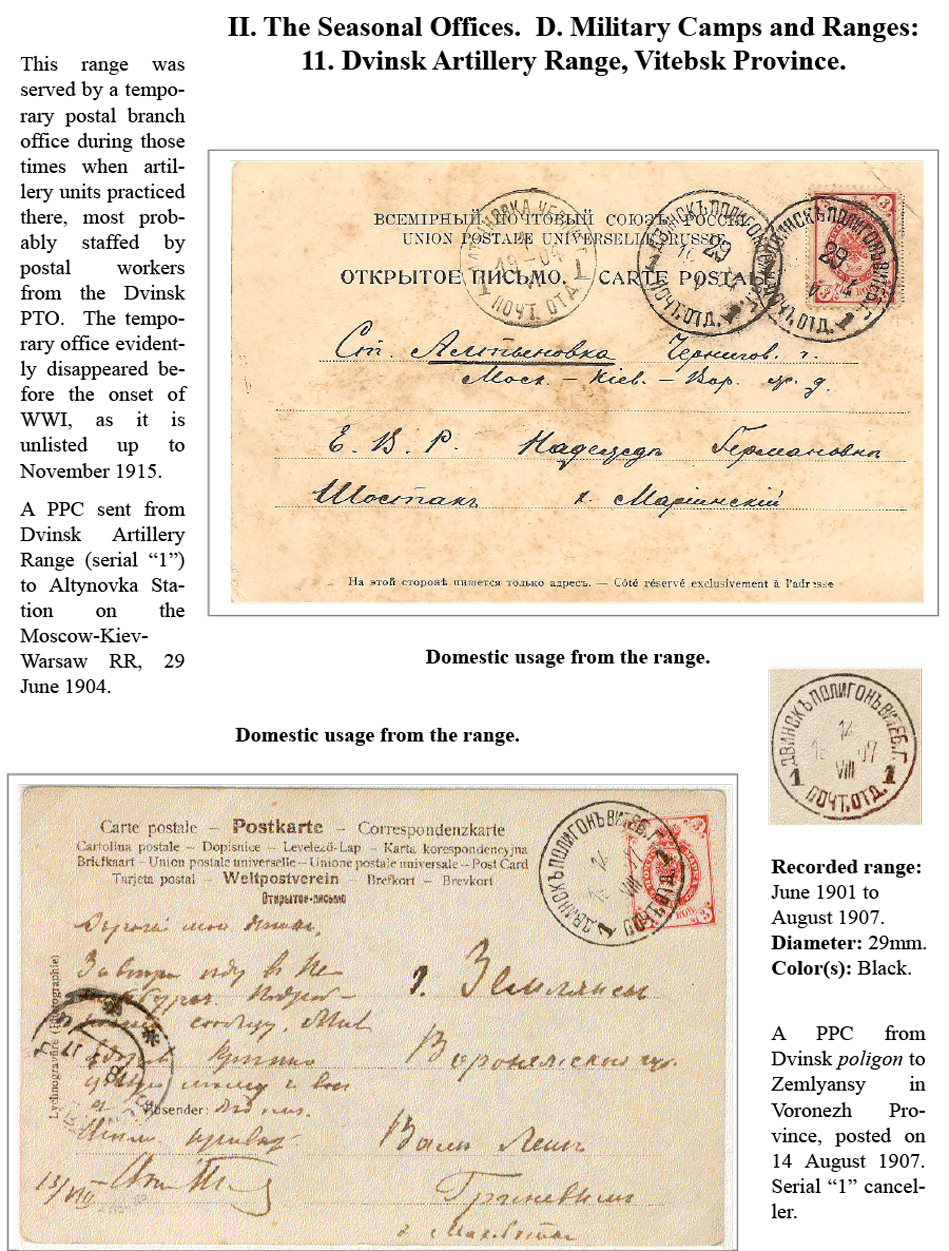 II. The Seasonal Offices. D. Military Camps and Ranges:
11. Dvinsk Artillery Range, Vitebsk Province.
This range was
served by a tempo-
rary postal branch
office during those
times when artil-
lery units practiced
there, most prob-
ably staffed by
postal workers
from the Dvinsk
PTO. The tempo-
rary office evident-
ly disappeared be-
fore the onset of
WWI, as it is
unlisted up to
November 1915.
A PPC sent from
Dvinsk Artillery
Range (serial “1”)
to Altynovka Sta-
tion on the
Moscow-Kiev-
Warsaw RR, 29
June 1904.
ВСЕМІРНЫЙ ПОЧТОВЫЙ СОЮЗЪ. РОССІЯ
UNION POSTALE UNIVERSELLE. RUSSIE
ОТКРЫТОЕ ПИСЬМО. CARTE POSTALE
ПОЧТ. ОТД.
ДВИНСКЪ ПОЛИГОНЪ
29
1 ПОЧТ. ОТД. 1
ДВИНСКЪ ПОЛИГОНЪ ВИТЕБ. Г.
29
ПОЧТ. ОТД. 1
Ст. Алтыновка Чернигов. г.
Моск. – Кіев. – Вор. ж. д.
Е. В. Р. Надеждѣ Германовнѣ
Шостакъ х. Маріинскій
На этой сторонѣ пишется только адресъ. — Côté réservé exclusivement à l'adresse
Domestic usage from the range.
ДВИНСКЪ ПОЛИГОНЪ ВИТЕБ. Г.
14
07
VIII
1 ПОЧТ. ОТД. 1
Domestic usage from the range.
Carte postale – Postkarte – Correspondenzkarte
Cartolina postale – Dopisnice – Levelező-Lap – Karta korespondencyjna
Briefkaart – Union postale universelle – Unione postale universale – Post Card
Tarjeta postal – Weltpostverein – Brefkort – Brevkort
Открытое-письмо
ДВИНСКЪ ПОЛИГОНЪ ВИТЕБ. Г.
VIII
1 ПОЧТ. ОТД. 1
Завтра ѣду в
г. Землянскъ
Воронежской губ.
Lychnogravüre (Photographie)
Absender:
13/VIII
Recorded range:
June 1901 to
August 1907.
Diameter: 29mm.
Color(s): Black.
A PPC from
Dvinsk poligon to
Zemlyansy in
Voronezh Pro-
vince, posted on
14 August 1907.
Serial “1” cancel-
ler.